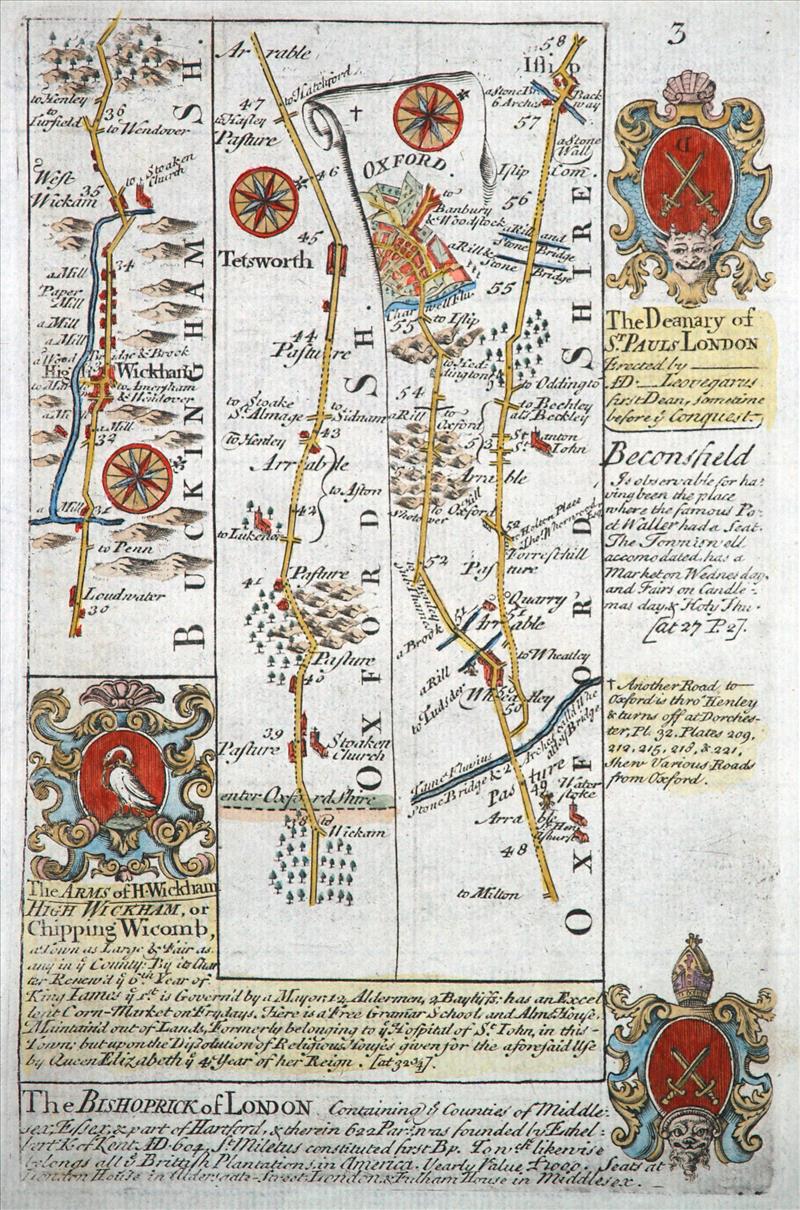 3
to Henley
to Turfield
36
to Wendover
West
Wickam
35
to Stoaken
Church
34
a Mill
Paper
Mill
a Mill
a Mill
Wickham
to Amersham
& Wendover
a Mill
32
a Mill
31
to Penn
Loudwater
30
BUCKINGHAM SH.
Arrable
to Hatchford
47
to Hasley
Pasture
46
45
Tetsworth
44
Pasture
to Stoake
St. Almage
to Sidnam
to Henley
43
Arrable
to Aston
42
to Lukenor
41
Pasture
Pasture
40
39
Pasture
Stoaken
Church
enter Oxford Shire
38
to
Wickam
OXFORD SH.
OXFORD.
to
Banbury
& Woodstock
Charwell Flu
55
to Islip
to Hed
ington
54
a Rill
to
Oxford
53
to Oxford
Shetover
52
51
a Brook
a Rill
to Cudsden
Wheatley
50
Tame Fluvius
Stone Bridge & 2 Arches
Pasture
49
Water
stoke
Arrable
48
to Milton
58
Islip
a Stone Br.
6 Arches
Back
way
57
a Stone
Wall
Islip
Com.
56
a Rill and
Stone Bridge
a Rill &
Stone
Bridge
55
to Oddington
to Bechley
als Beckley
53
Stanton
St. Iohn
Arrable
52
to Holton Place
Forresthill
Pasture
Quarry
Arrable
to Wheatley
50
OXFORD SHIRE
The Deanary of
St. PAULS LONDON
Erected by
AD. Leovegarus
first Dean, sometime
before ye Conquest.
Beconsfield
Is observable for ha-
ving been the place
where the famous Po-
et Waller had a Seat.
The Town is well
accomodated, has a
Market on Wednesday,
and Fairs on Candle-
mas day & Holy Thu.
[at 27 P.2].
† Another Road to
Oxford is thro' Henley
& turns off at Dorches-
ter, Pl. 32. Plates 209,
212, 215, 218, & 221,
shew Various Roads
from Oxford.
The ARMS of H. Wickham
HIGH WICKHAM, or
Chipping Wicomb,
a Town as Large & Fair as
any in ye County. By its Char
ter Renew'd ye 6th Year of
King Iames ye 1st. is Govern'd by a Mayor 12 Aldermen, 2 Bayliffs: has an Excel
lent Corn-Market on Frydays. Here is a Free Gramar School, and Alms House,
Maintain'd out of Lands, Formerly belonging to ye Hospital of St. Iohn, in this
Town; but upon the Dissolution of Religious Houses given for the aforesaid Use
by Queen Elizabeth ye 4th Year of her Reign. [at 32¾].
The BISHOPRICK of LONDON Containing ye Counties of Middle-
sex, Essex, & part of Hartford, & therein 622 Par: was founded by Ethel-
bert K. of Kent. AD. 604. St. Miletus constituted first Bp. To wch likewise
belongs all ye British Plantations in America. Yearly Value, Seats at
London House in Aldersgate-Street London, & Fulham House in Middlesex.